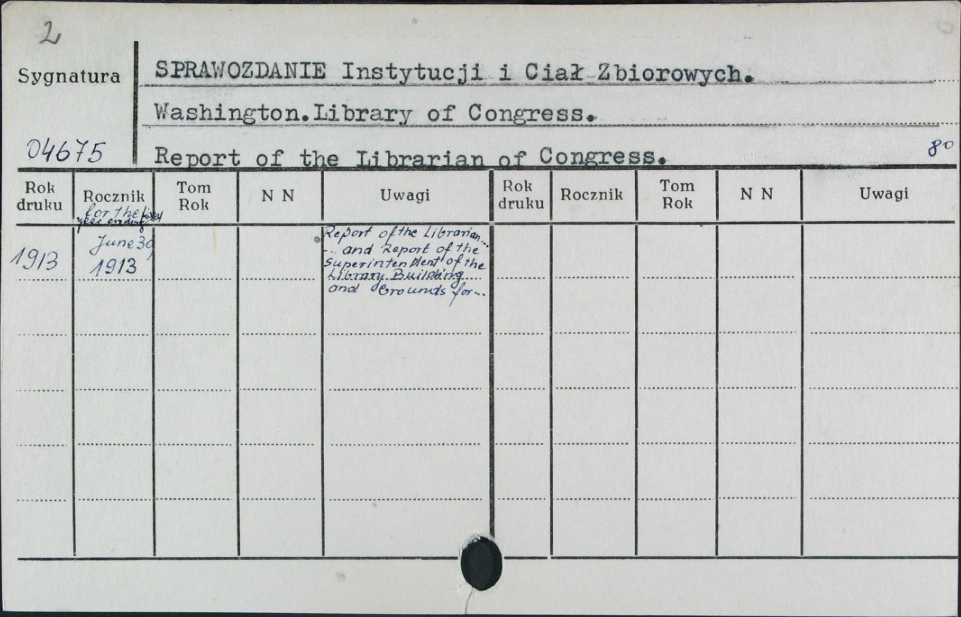 2
Sygnatura
SPRAWOZDANIE Instytucji i Ciał Zbiorowych.
Washington.Library of Congress.
04675
Report of the Librarian of Congress.
8o
Rok druku
Rocznik
Tom Rok
N N
Uwagi
Rok druku
Rocznik
Tom Rok
N N
Uwagi
for the
year ending
June 30
1913
1913
Report of the Librarian...
... and Report of the
Superintendent of the
Library Building
and Grounds for...